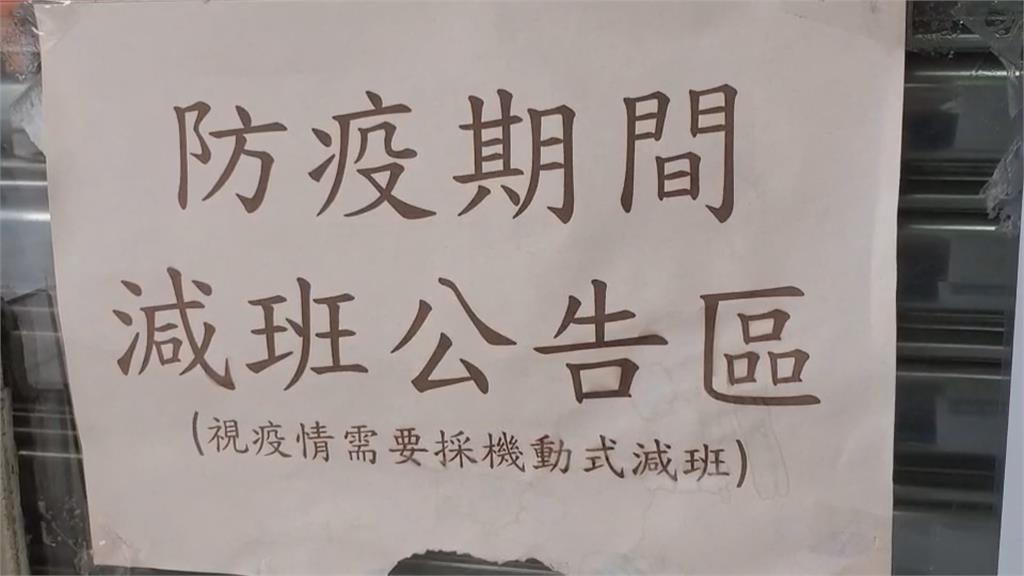 防疫期間
減班公告區
(視疫情需要採機動式減班)